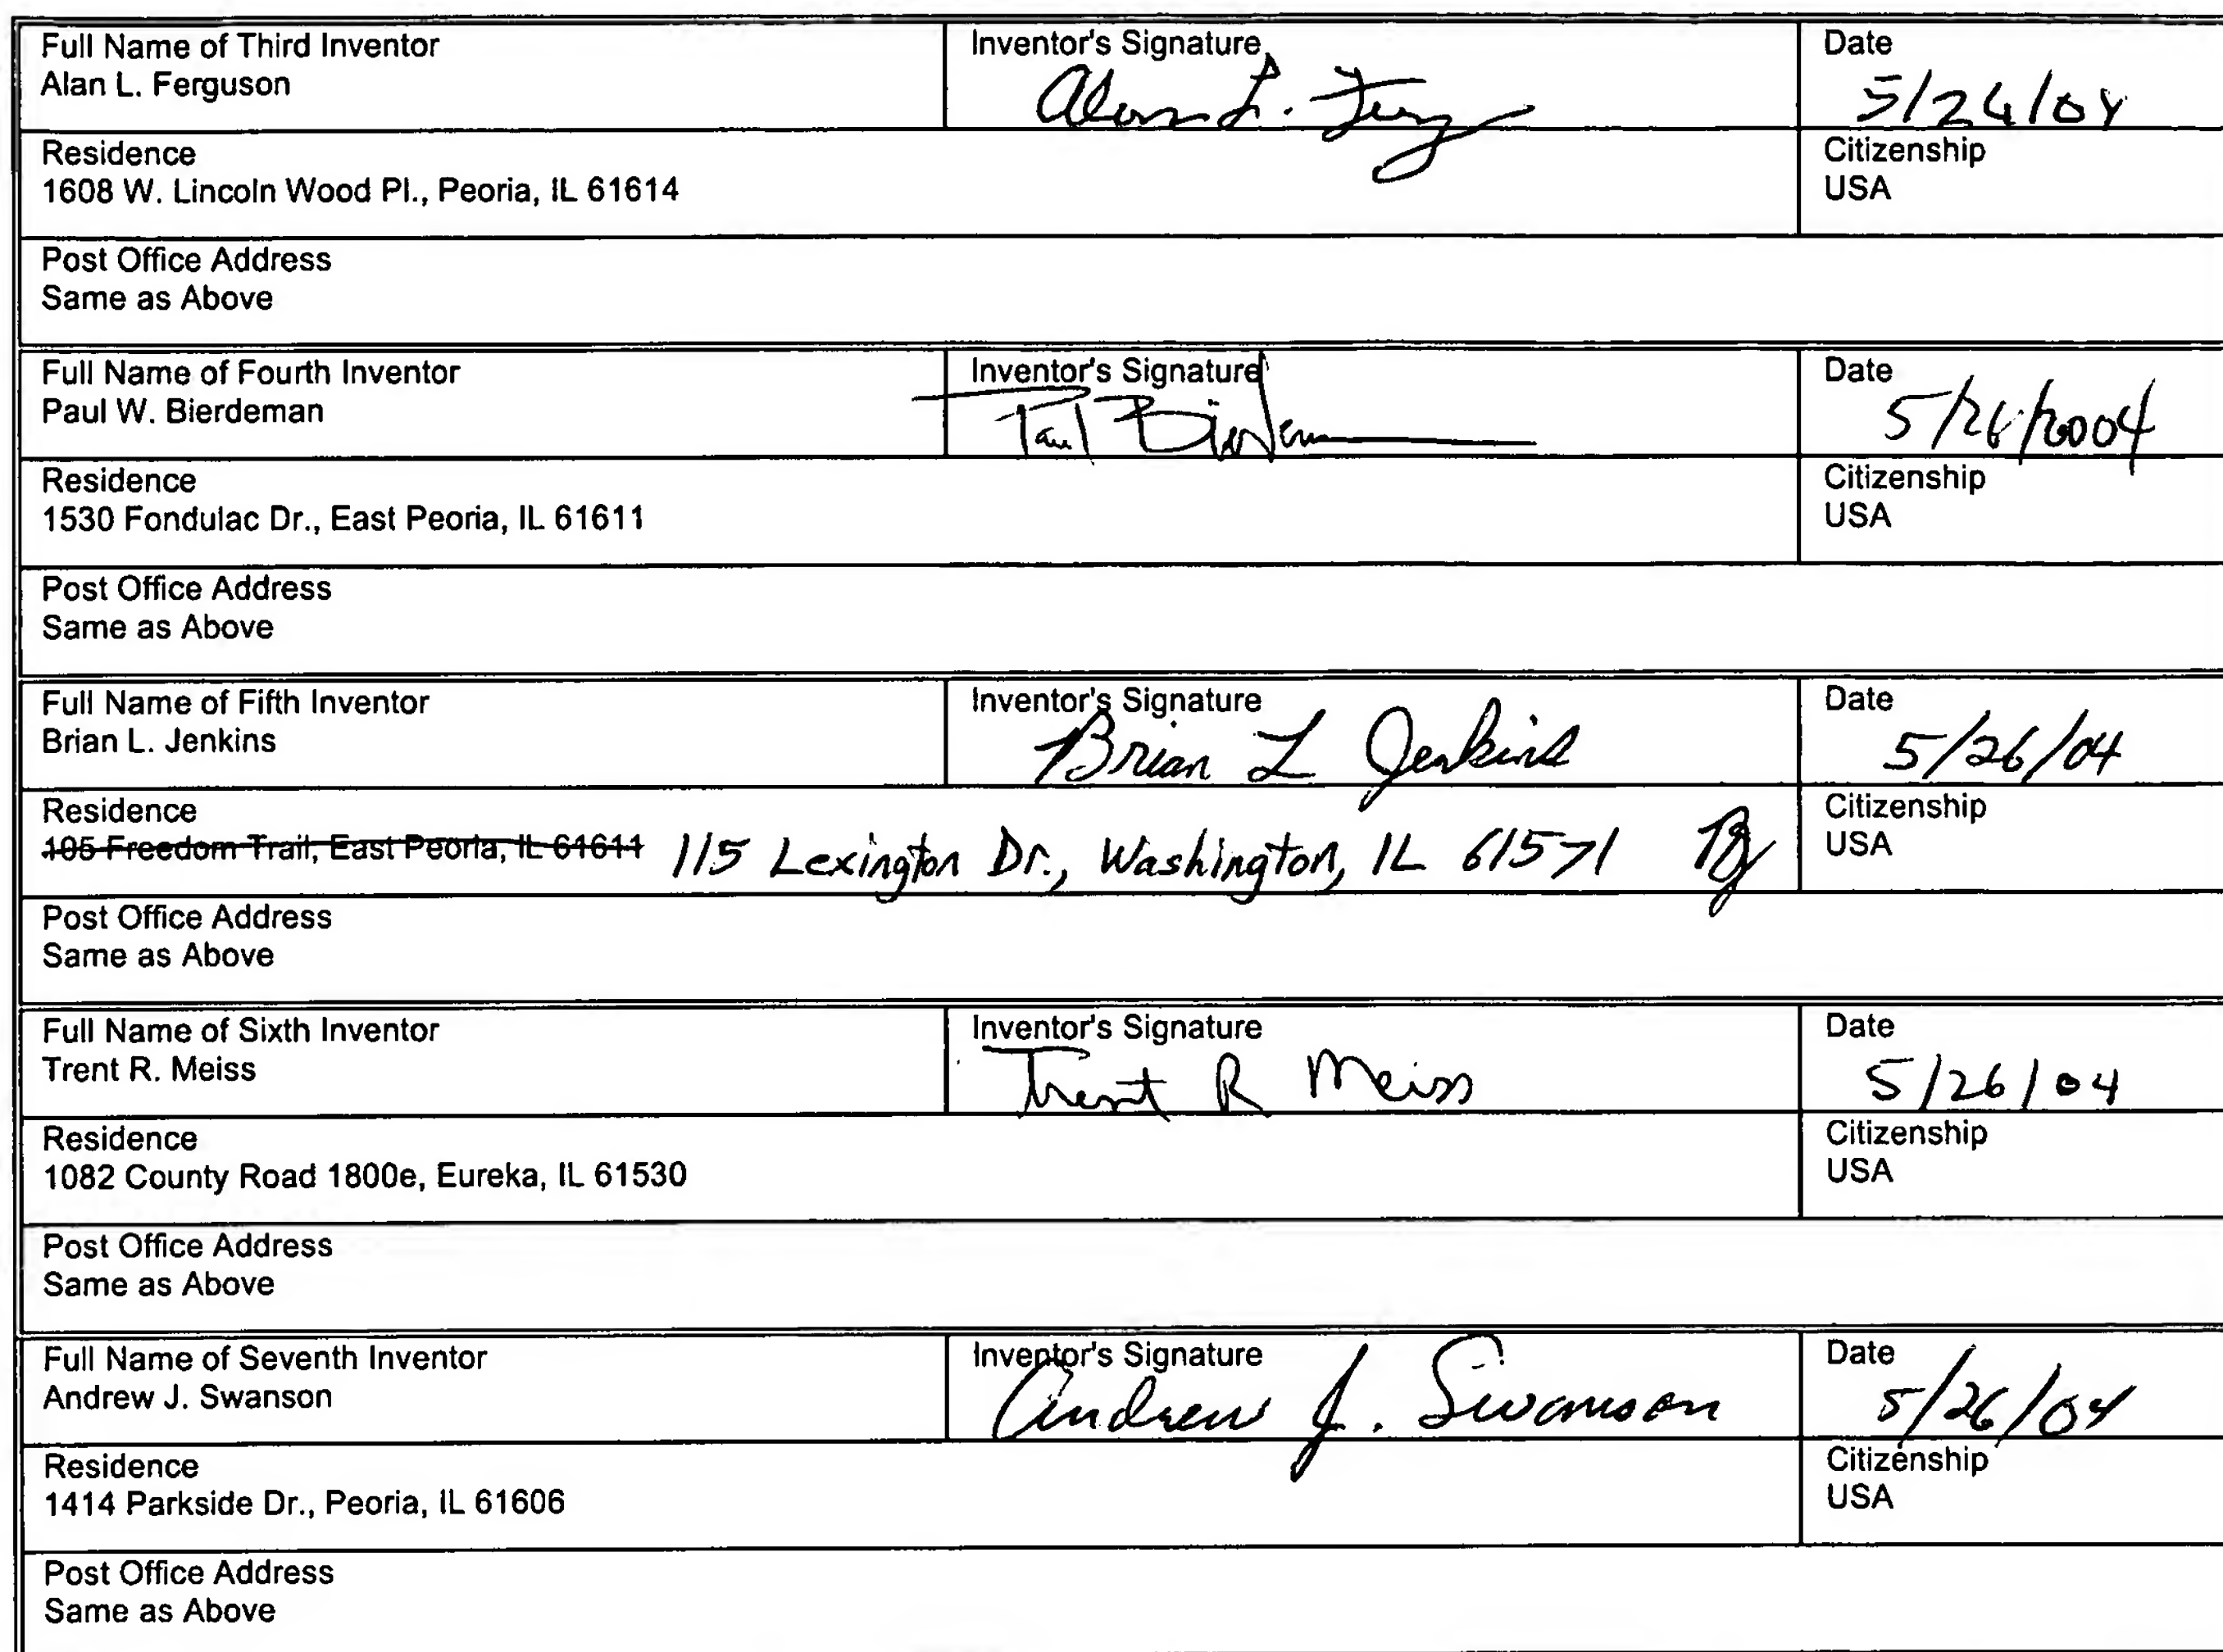 Full Name of Third Inventor
Alan L. Ferguson
Inventor's Signature
Alan L. Ferg
Date
5/26/04
Residence
1608 W. Lincoln Wood Pl., Peoria, IL 61614
Citizenship
USA
Post Office Address
Same as Above
Full Name of Fourth Inventor
Paul W. Bierdeman
Inventor's Signature
Paul Bierdeman
Date
5/26/2004
Residence
1530 Fondulac Dr., East Peoria, IL 61611
Citizenship
USA
Post Office Address
Same as Above
Full Name of Fifth Inventor
Brian L. Jenkins
Inventor's Signature
Brian L Jenkins
Date
5/26/04
Residence
105 Freedom Trail, East Peoria, IL 61611 115 Lexington Dr., Washington, IL 61571
Citizenship
USA
Post Office Address
Same as Above
Full Name of Sixth Inventor
Trent R. Meiss
Inventor's Signature
Trent R Meiss
Date
5/26/04
Residence
1082 County Road 1800e, Eureka, IL 61530
Citizenship
USA
Post Office Address
Same as Above
Full Name of Seventh Inventor
Andrew J. Swanson
Inventor's Signature
Andrew J. Swanson
Date
5/26/04
Residence
1414 Parkside Dr., Peoria, IL 61606
Citizenship
USA
Post Office Address
Same as Above